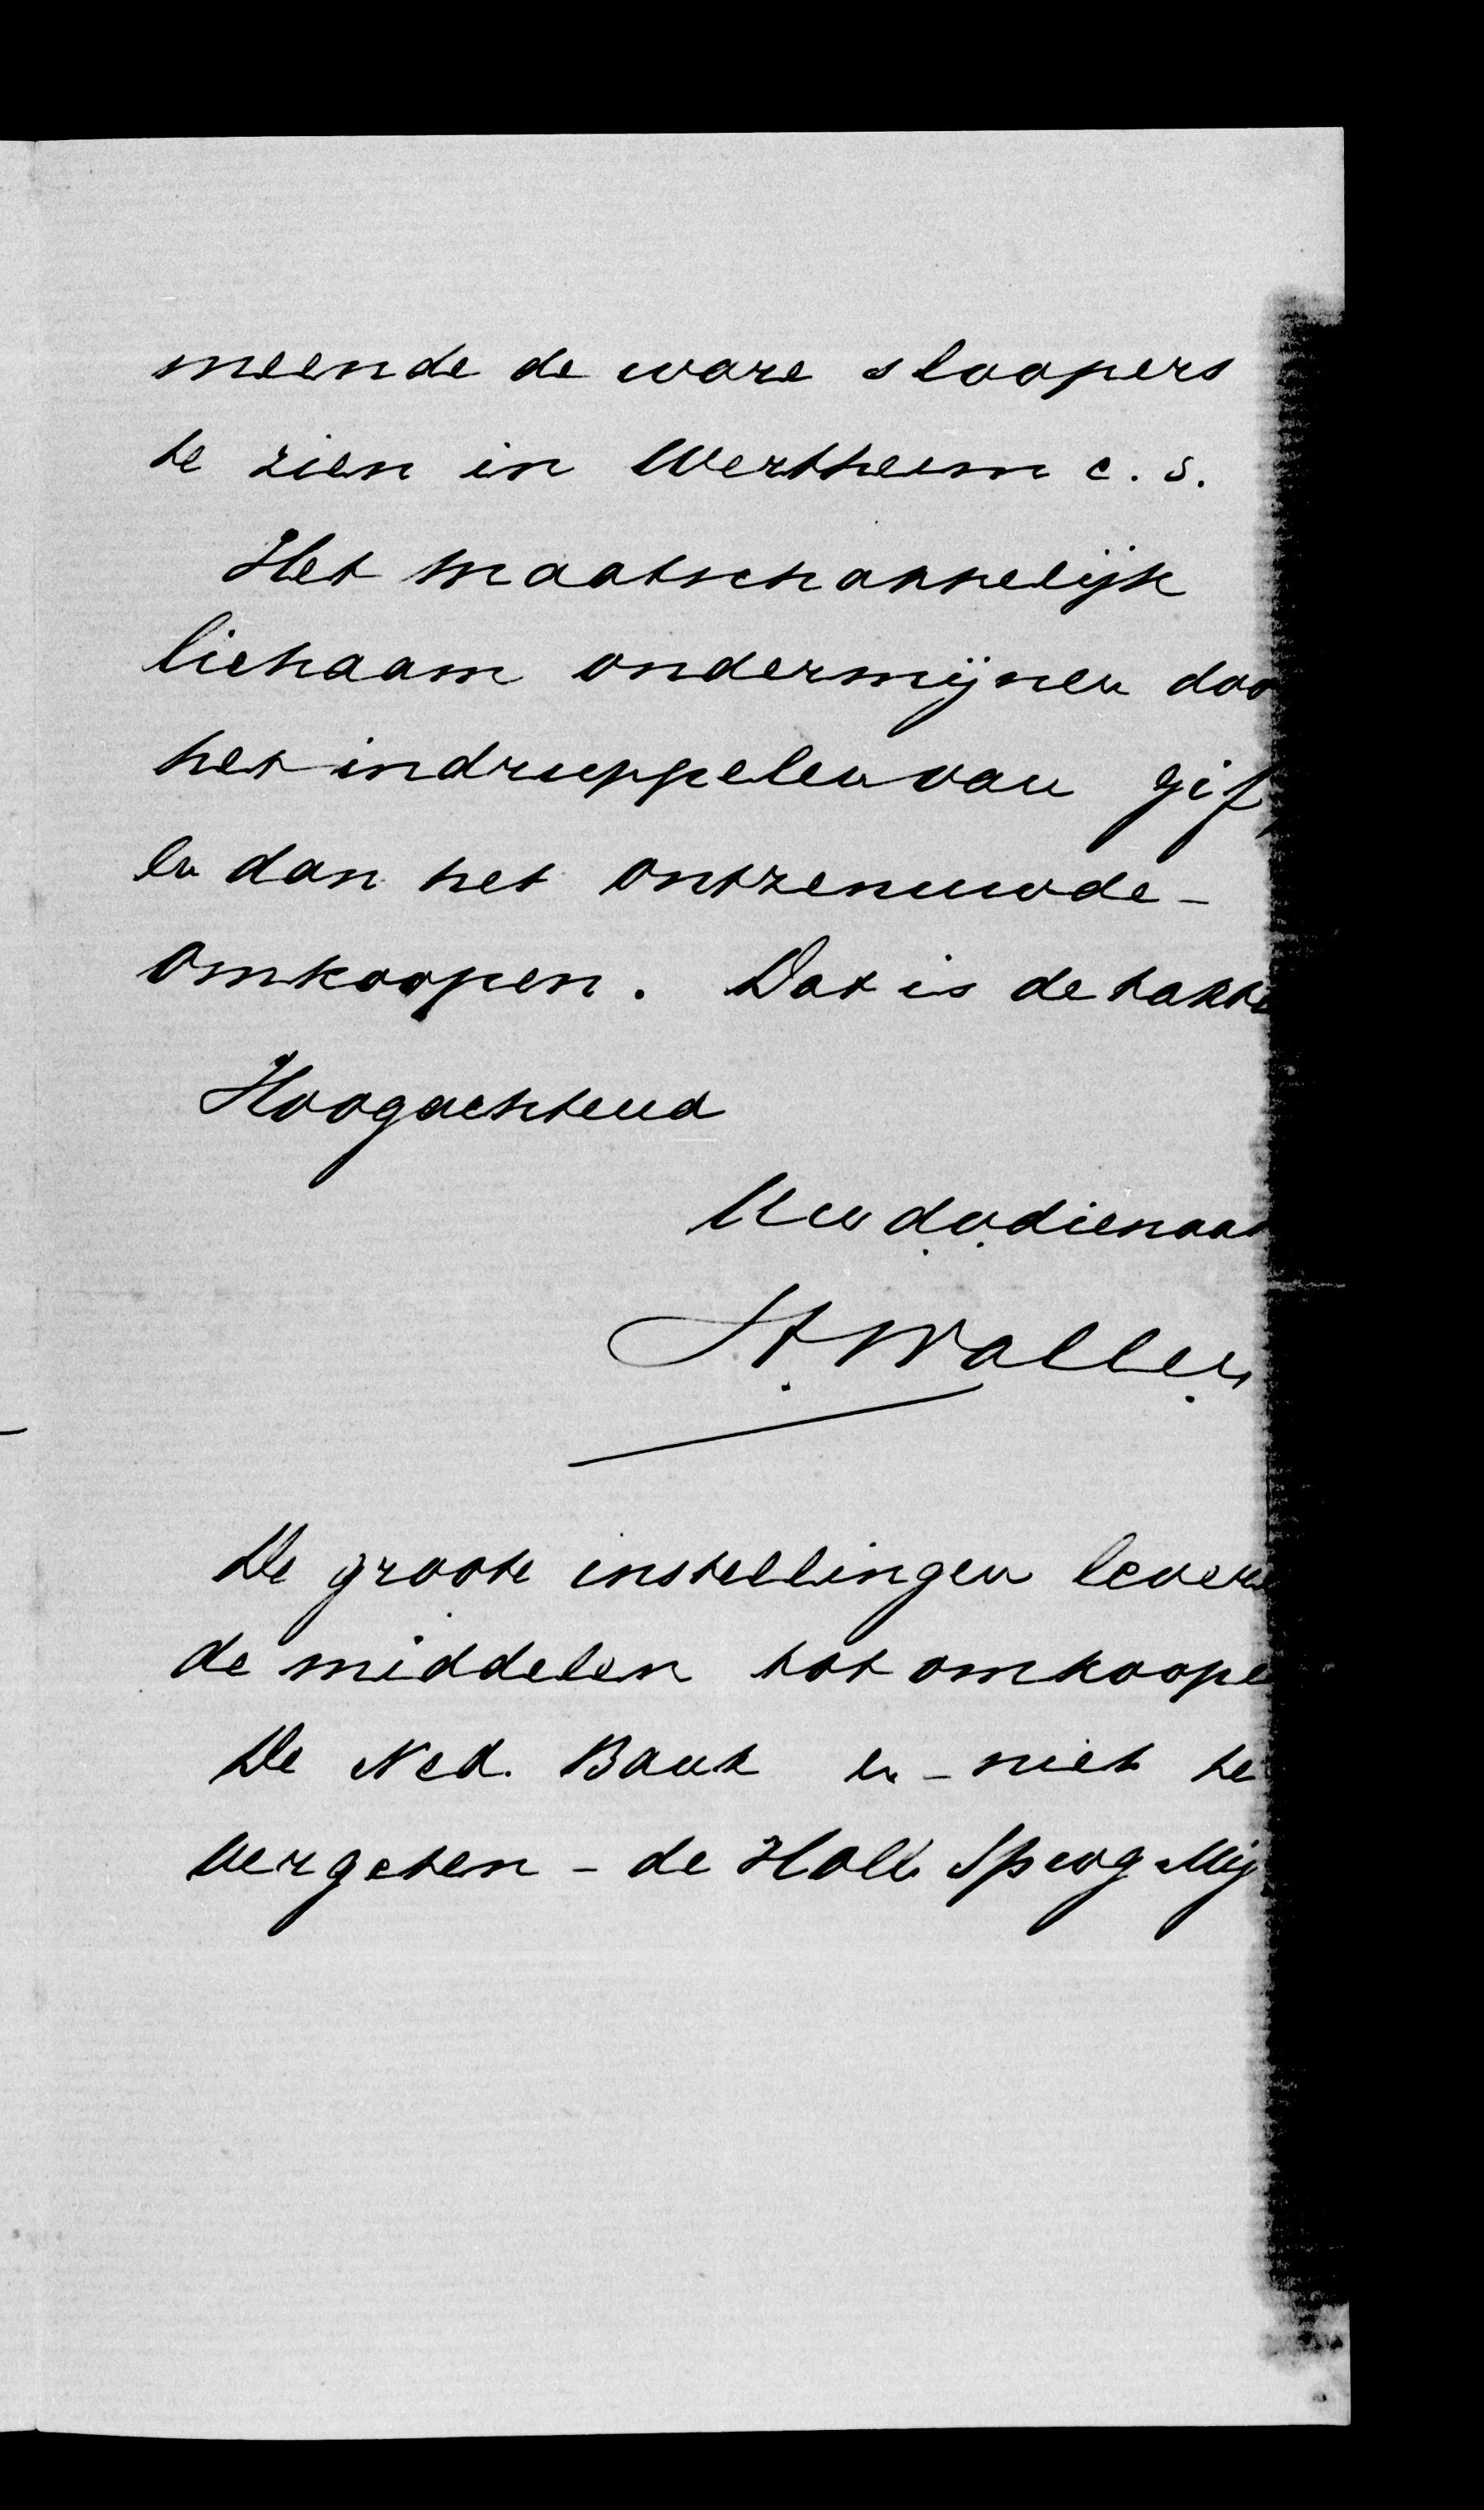 meende de ware sloopers
te zien in Wertheim c.s.
Het maatschappelijk
lichaam ondermijnen doo
het indruppelen van gif,
en dan het ontzenuwde -
omkoopen. Dat is de takti
Hoogachtend
Uw dv dienaar
H. Waller
De groote instellingen levere
de middelen tot omkoope
De Ned. Bank en - niet te
vergeten - de Holl Spwg Mij